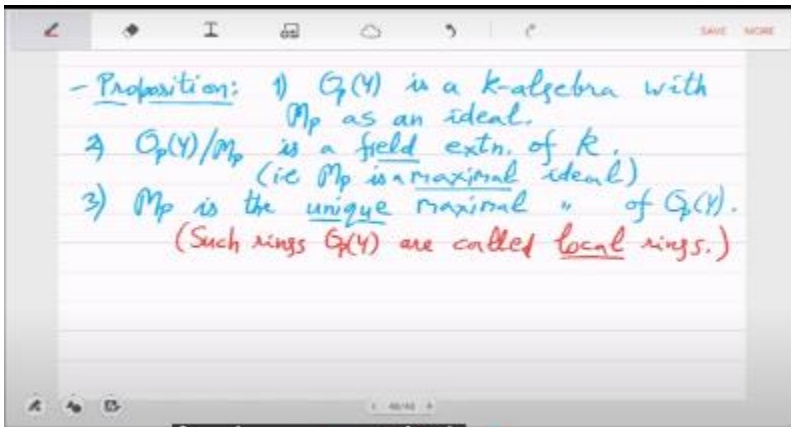 SAVE MORE
- Proposition: 1) O_p(Y) is a k-algebra with
m_p as an ideal.
2) O_p(Y)/m_p is a field extn. of k.
(ie m_p is a maximal ideal)
3) m_p is the unique maximal " of O_p(Y).
(Such rings O_p(Y) are called local rings.)